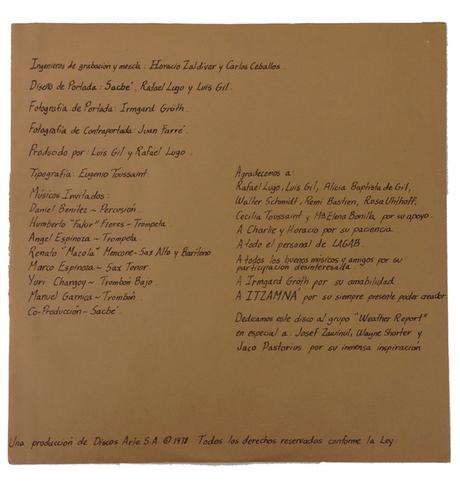 Ingenieros de grabación y mezcla: Horacio Zaldivar y Carlos Ceballos.
Diseño de Portada: Sacbé, Rafael Lugo y Luis Gil.
Fotografía de Portada: Irmgard Gröth.
Fotografía de Contraportada: Juan Farré.
Producido por: Luis Gil y Rafael Lugo.
Tipografía: Eugenio Toussaint
Músicos Invitados:
Daniel Benitez ~ Percusión
Humberto "Fakir" Flores ~ Trompeta
Angel Espinoza ~ Trompeta
Renato "Mazola" Moncone - Sax Alto y Barítono
Marco Espinoza ~ Sax Tenor
Yuri Changoy ~ Trombón Bajo
Manuel Garnica ~ Trombón
Co-Producción ~ Sacbé.
Agradecemos a
Rafael Lugo, Luis Gil, Alicia Baptista de Gil,
Walter Schmidt, Remi Bastien, Rosa Uhthoff,
Cecilia Toussaint, Ma Elena Bonilla por su apoyo.
A Charlie y Horacio por su paciencia.
A todo el personal de LAGAB.
A todos los buenos músicos y amigos por su
participación desinteresada.
A Irmgard Gröth por su amabilidad.
A ITZAMNÁ por su siempre presente poder creador
Dedicamos este disco al grupo "Weather Report"
en especial a: Josef Zawinul, Wayne Shorter y
Jaco Pastorius por su inmensa inspiración
Una producción de Discos Arie S.A. © 1978 Todos los derechos reservados conforme la Ley